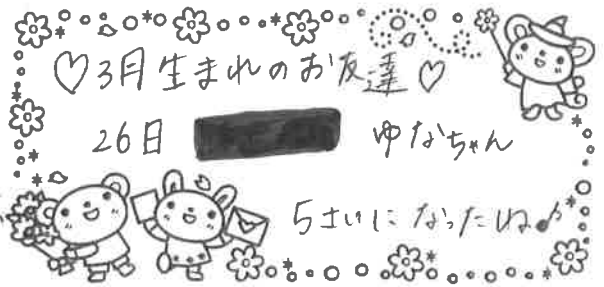 ♡3月生まれのお友達♡
26日 ゆなちゃん
5さいになったね♪